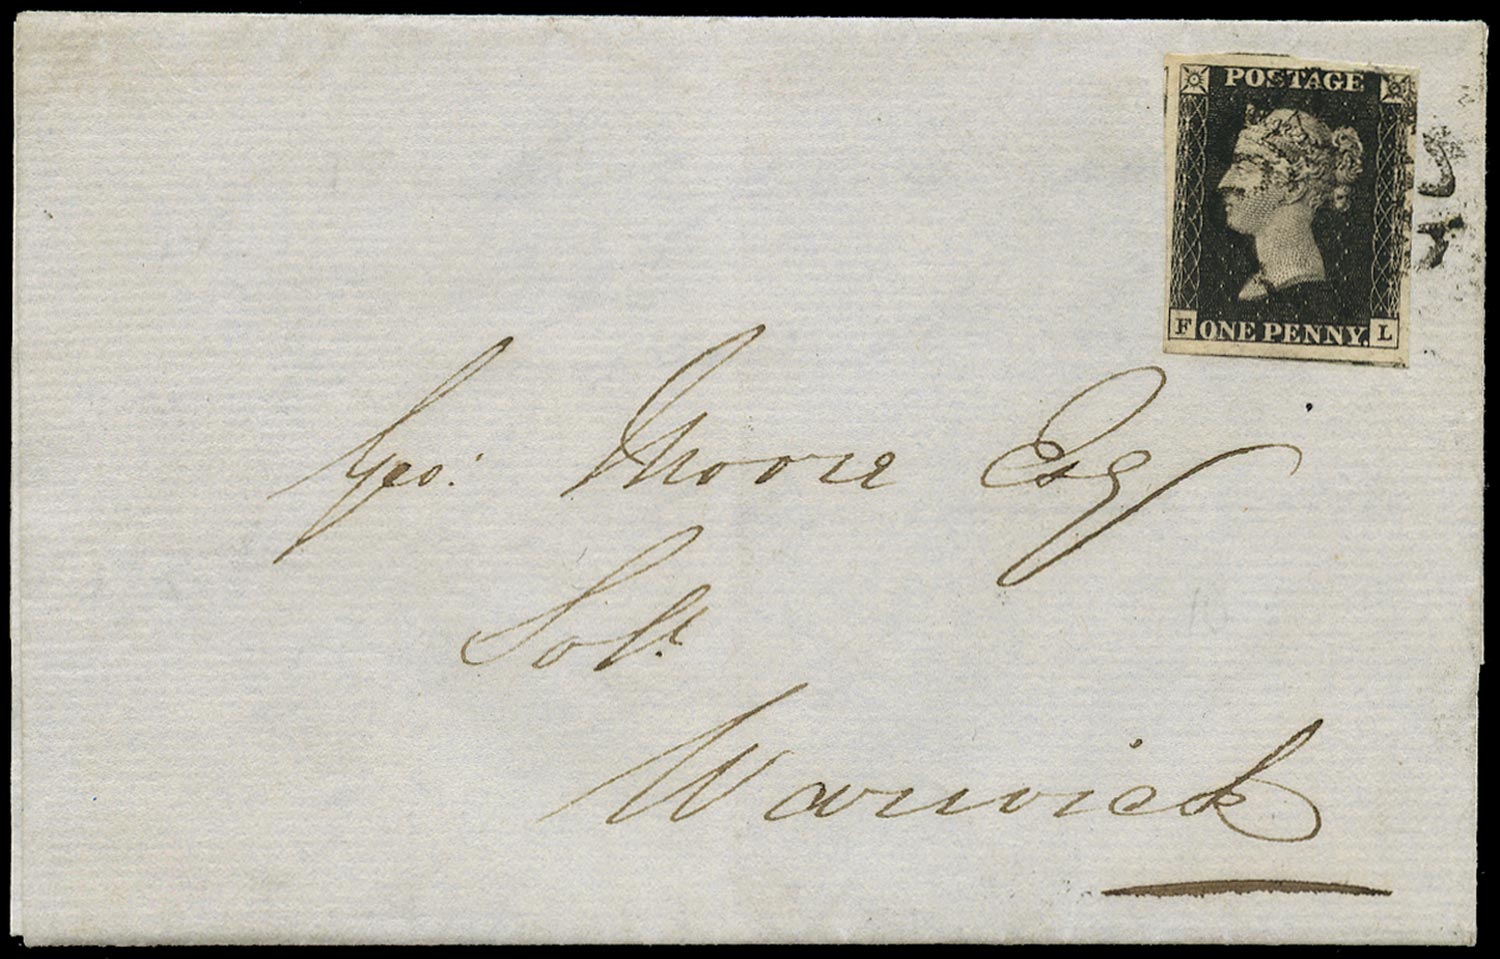 POSTAGE
F ONE PENNY. L
Geo: Moore Esq
Solr.
Warwick